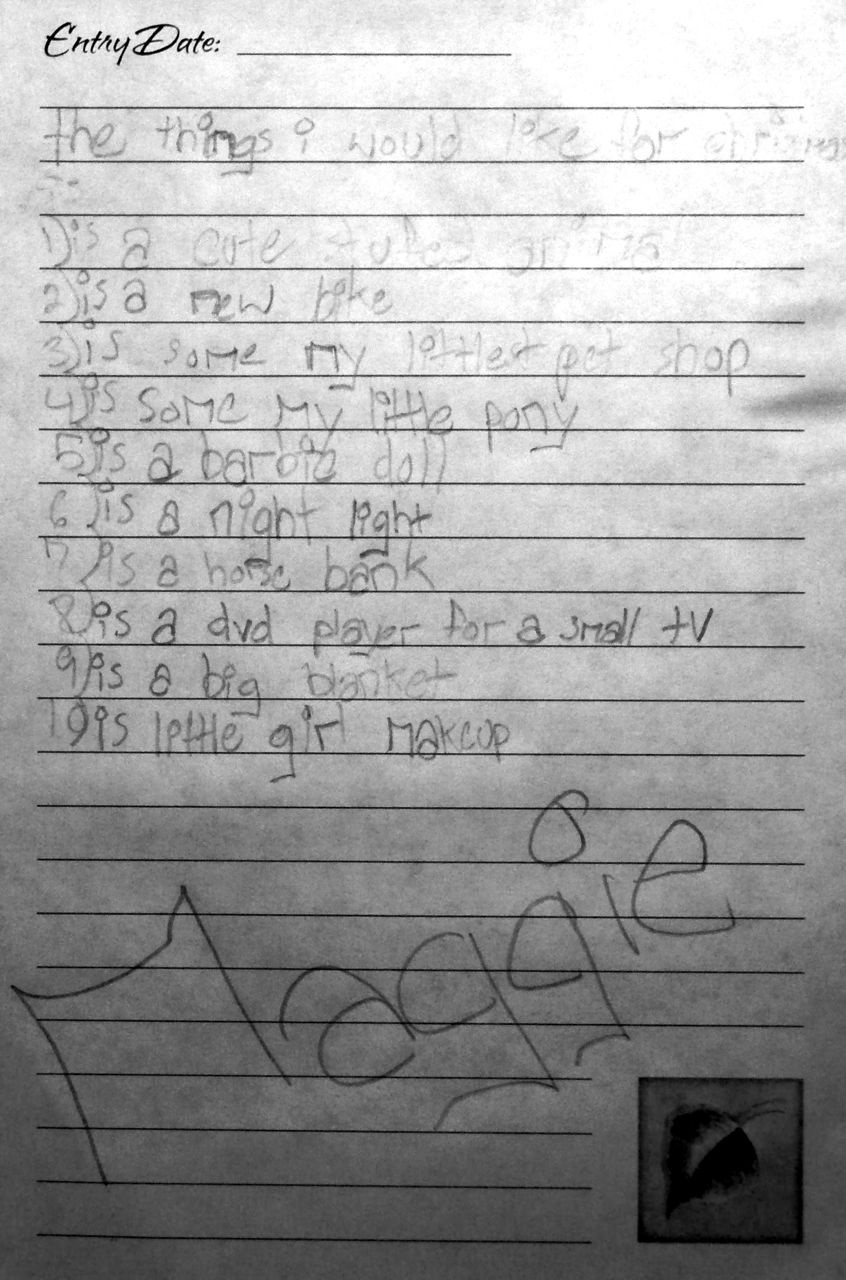 Entry Date:
the things i would like for
is:
1) is a cute stufed
2) is a new bike
3) is some my littlest pet shop
4) is some my little pony
5) is a barbie doll
6) is a night light
7) is a horse bank
8) is a dvd player for a small tv
9) is a big blanket
10 is little girl makeup
Maggie